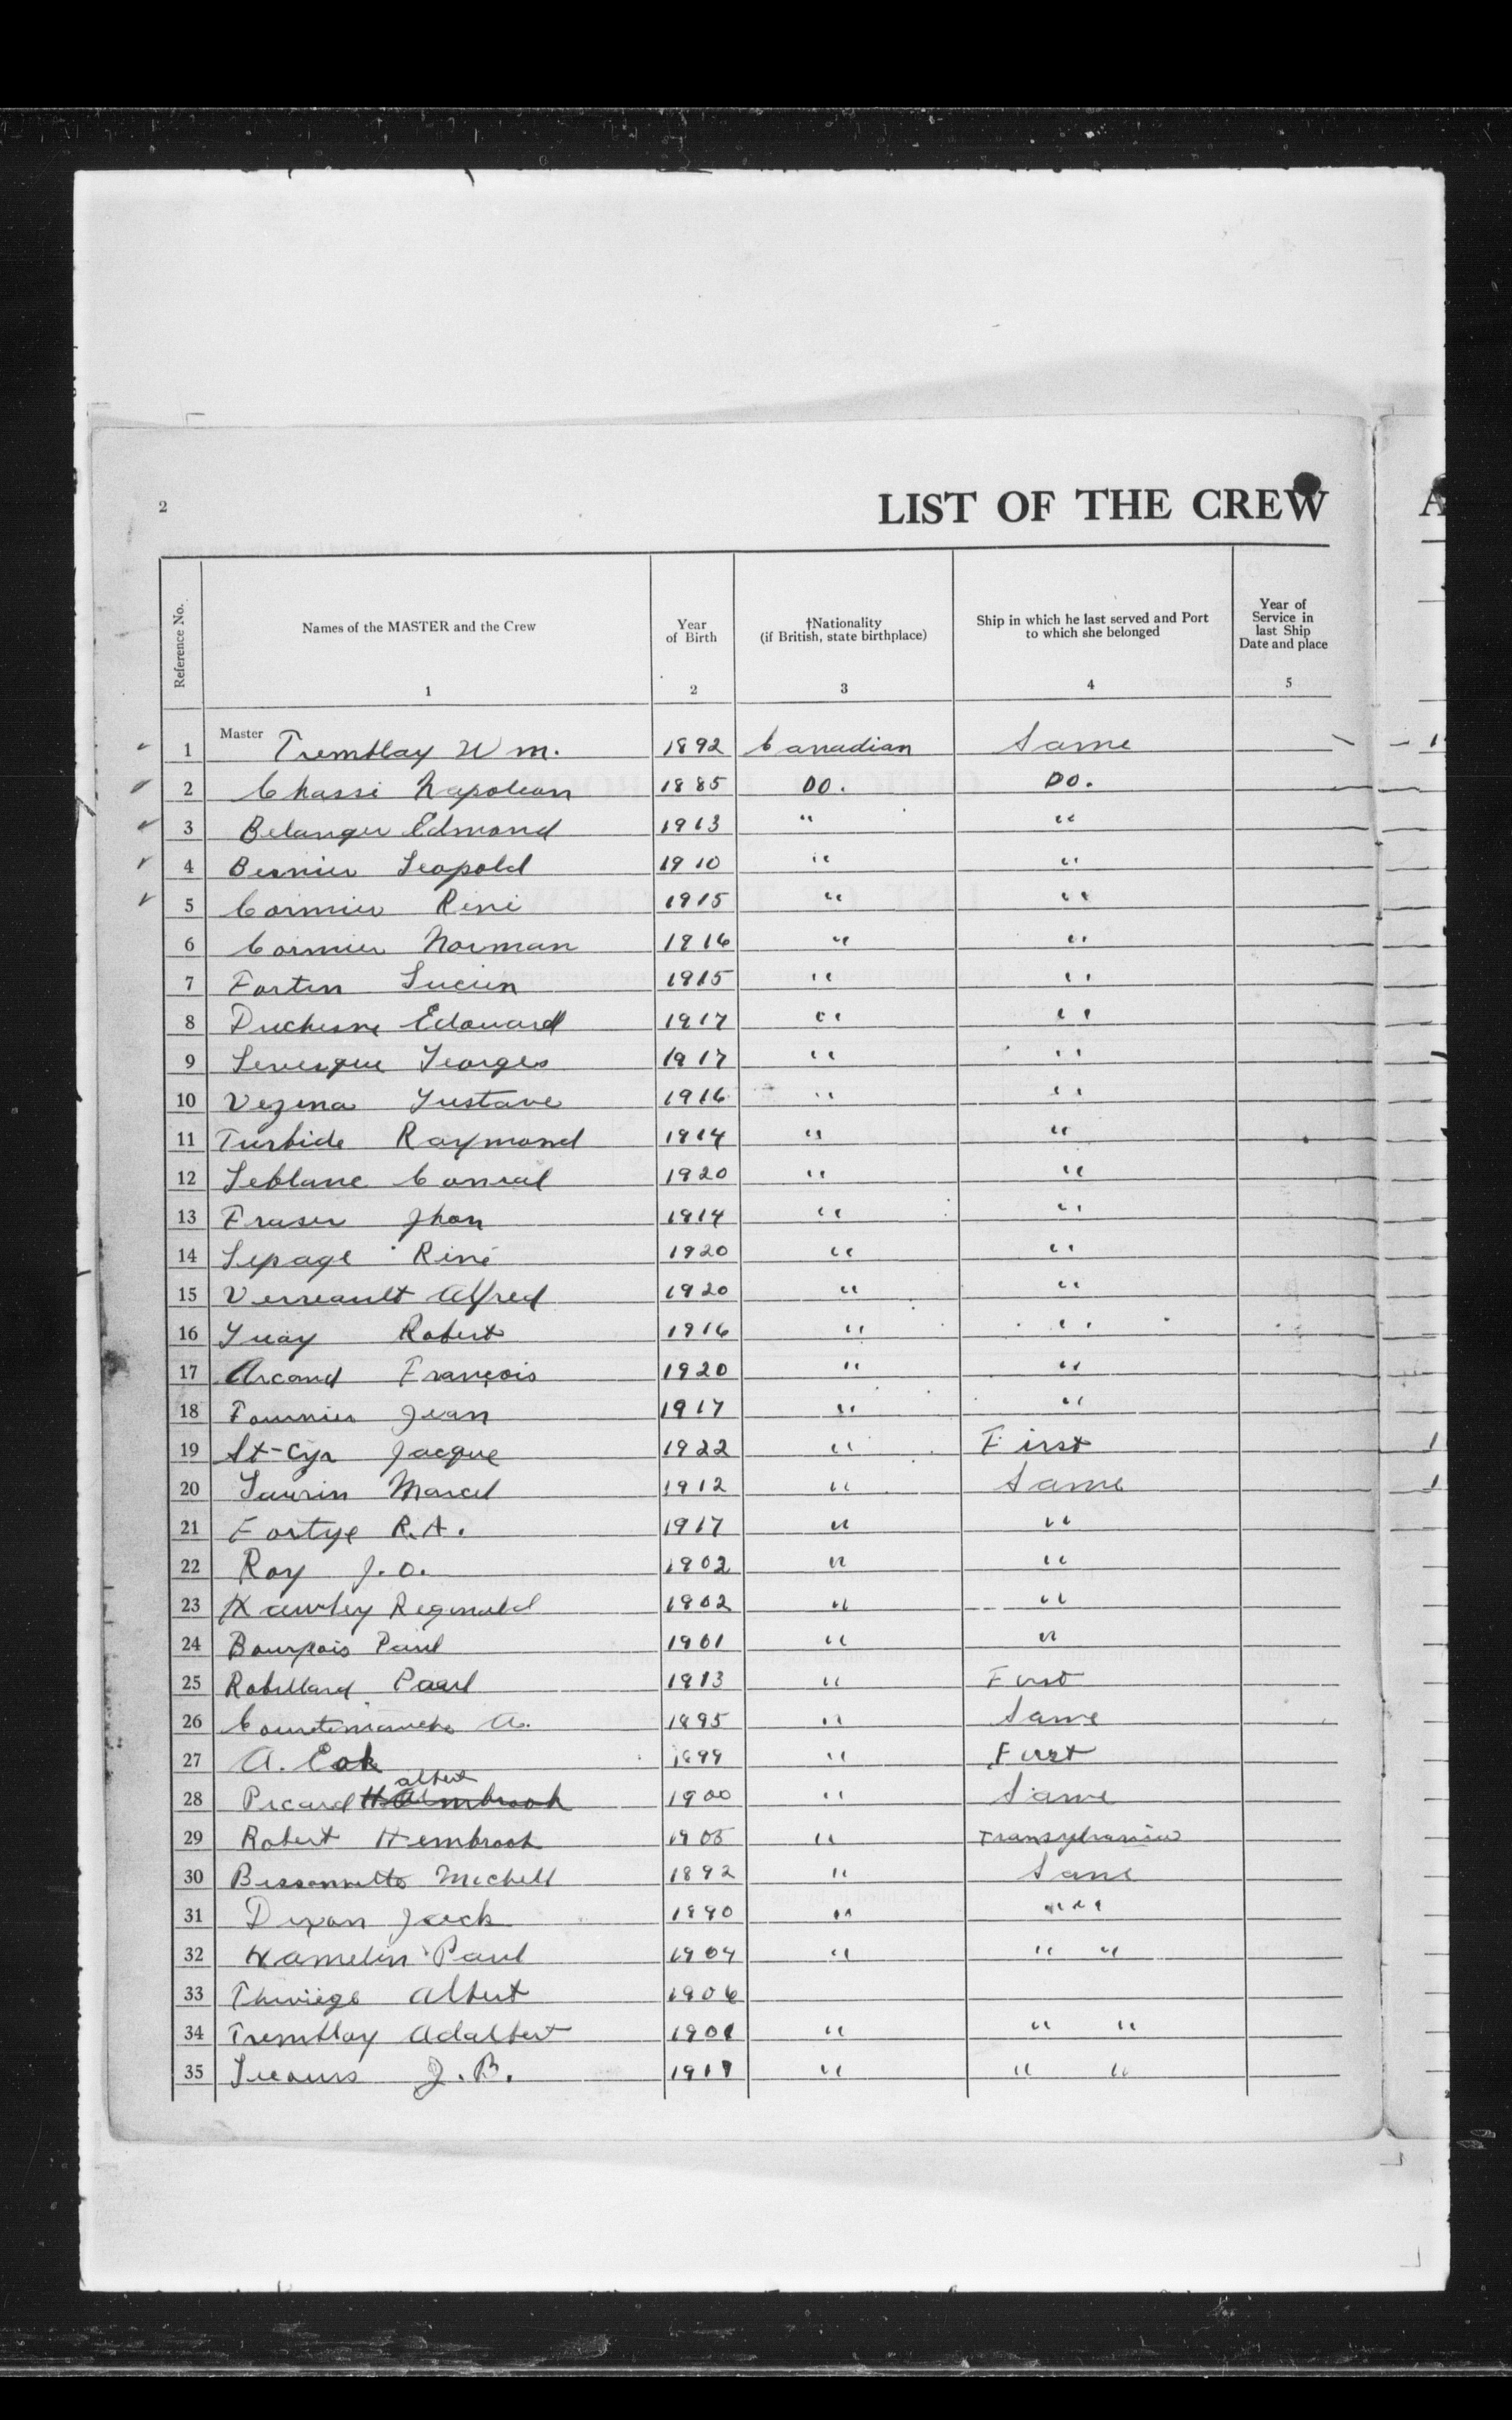 2
LIST OF THE CREW
Reference No.
Names of the MASTER and the Crew
1
Year
of Birth
2
†Nationality
(if British, state birthplace)
3
Ship in which he last served and Port
to which she belonged
4
Year of
Service in
last Ship
Date and place
5
1 Master Tremblay Wm. 1892 Canadian Same
2 Chassi Napoleon 1885 DO. DO.
3 Belanger Edmond 1913 " "
4 Bernier Leopold 1910 " "
5 Cormier Rene 1915 " "
6 Cormier Norman 1916 " "
7 Fortin Lucien 1915 " "
8 Duchesne Edouard 1917 " "
9 Levesque Georges 1917 " "
10 Vezina Gustave 1916 " "
11 Turbide Raymond 1914 " "
12 Leblanc Conrad 1920 " "
13 Fraser Jhon 1914 " "
14 Lepage René 1920 " "
15 Verreault Alfred 1920 " "
16 Guay Robert 1916 " "
17 Arcand François 1920 " "
18 Fournier Jean 1917 " "
19 St-Cyr Jacque 1922 " First
20 Laurin Marcel 1912 " Same
21 Fortye R.A. 1917 " "
22 Roy J.O. 1902 " "
23 Hawley Reginald 1902 " "
24 Bourgois Paul 1901 " "
25 Robillard Paul 1913 " First
26 Courtemanche A. 1895 " Same
27 A. 1899 " First
28 Picard Albert 1900 " Same
29 Robert Hembrook 1905 " Transylvania
30 Bissonnette Michell 1892 " Same
31 Dixon Jack 1890 " " "
32 Hamelin Paul 1904 " " "
33 Thiviege Albert 1906
34 Tremblay Adalbert 1901 " " "
35 J.B. " " "